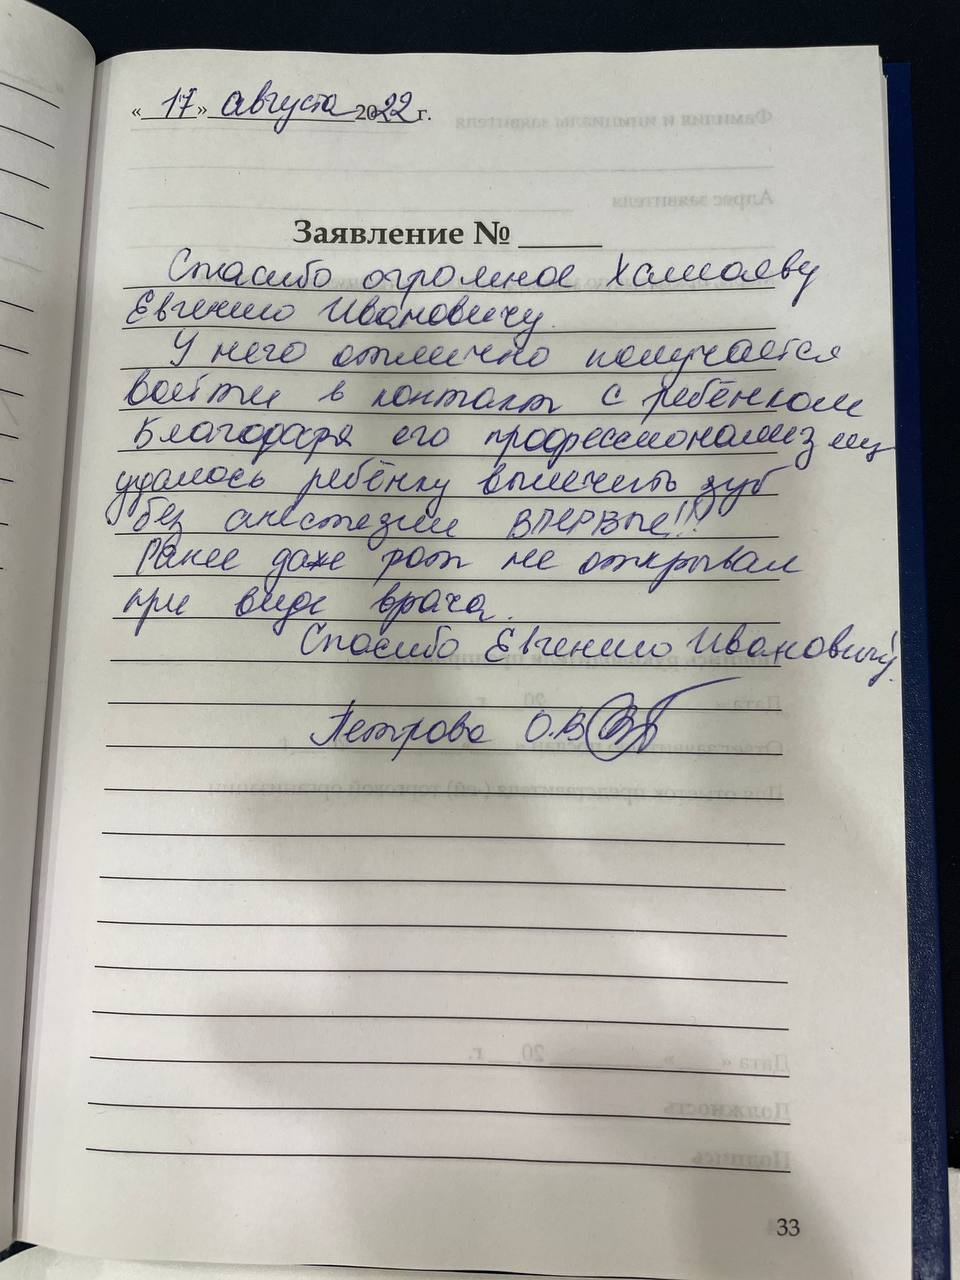 «17» августа 2022 г.
Заявление № ______
Спасибо огромное Хамаеву
Евгению Ивановичу.
У него отлично получается
войти в контакт с ребёнком
Благодаря его профессионализму
удалось ребёнку вылечить зуб
без анестезии ВПЕРВЫЕ!!!
Ранее даже рот не открывал
при виде врача.
Спасибо Евгению Ивановичу!
Петрова О.В
33